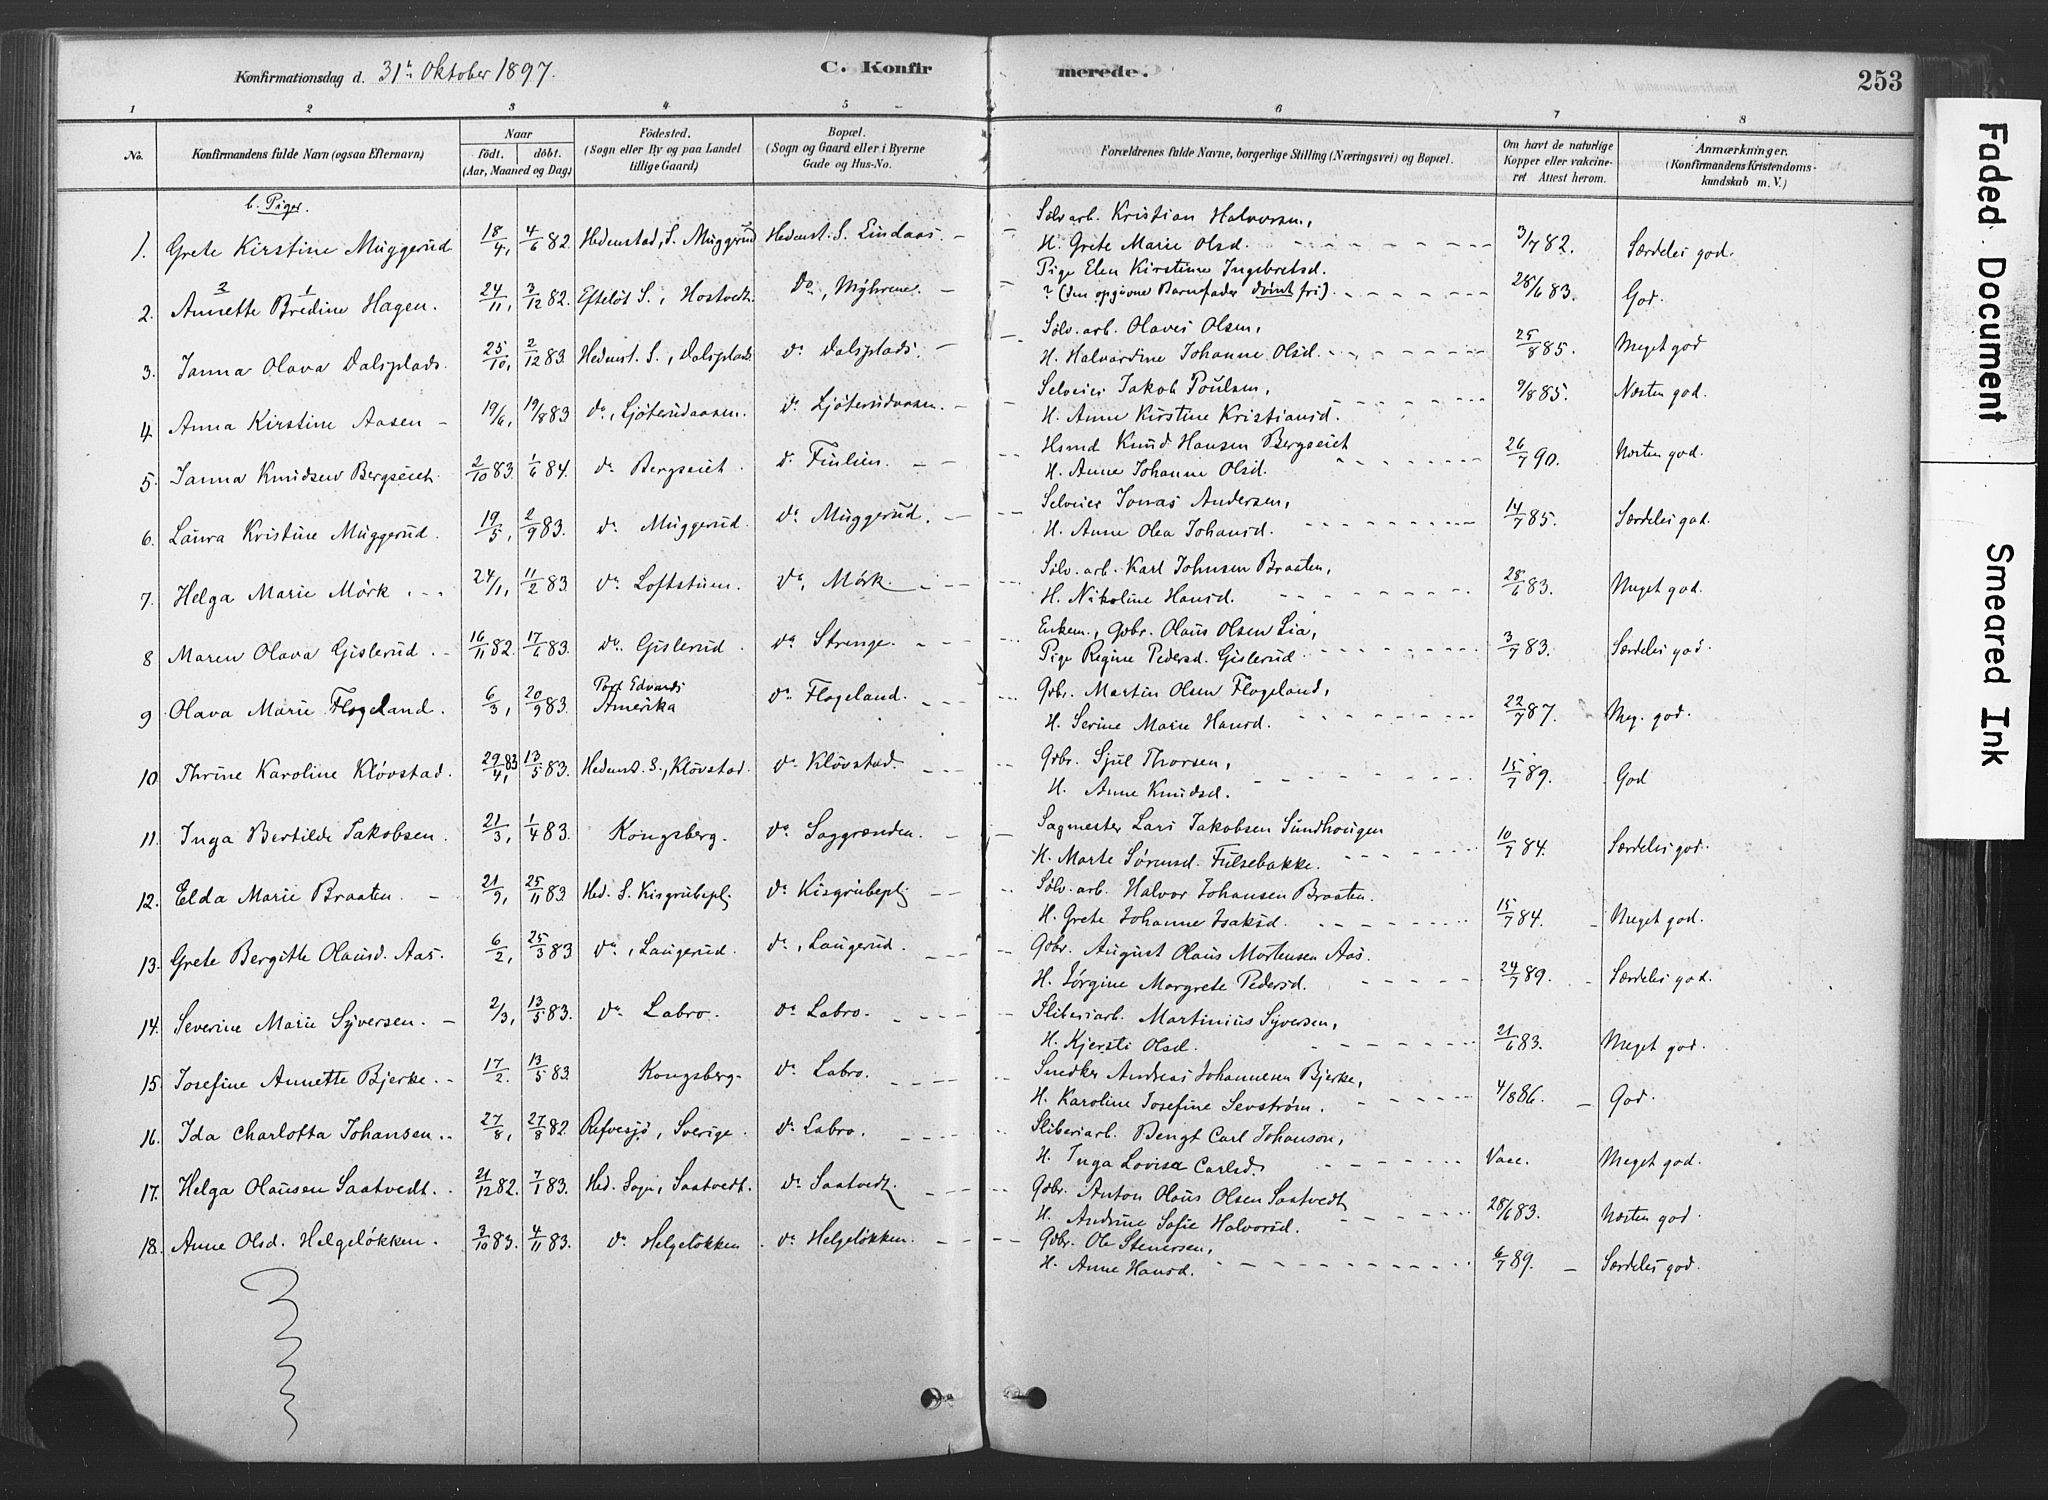 Konfirmationsdag d. 31te Oktober 1897. C. Konfirmerede. 253
1 2 3 4 5 6 7 8
No. Konfirmandens fulde Navn (ogsaa Efternavn) Naar födt. döbt. (Aar, Maaned og Dag) Födested. (Sogn eller By og paa Landet tillige Gaard) Bopæl. (Sogn og Gaard eller i Byerne Gade og Hus-No. Forældrenes fulde Navne, borgerlige Stilling (Næringsvei) og Bopæl. Om havt de naturlige Kopper eller vakcineret Attest herom. Anmærkninger. (Konfirmandens Kristendomskundskab m. V.)
b. Piger.
1. Grete Kirstine Muggerud 18/4, 4/6 82. Hedenstad, S. Muggerud Hedenst. S. Lindaas. Sølvarb. Kristian Halvorsen, H. Grete Marie Olsd. 3/7 82. Særdeles god.
2. Annette 2 Bredine 1 Hagen. 24/11, 3/12 82. Efteløt S., Hostvedt. Do, Myhrene. Pige Elen Kirstine Ingebretsd. ? (den opgivne Barnefader dömt fri). 28/6 83. God.
3. Janna Olava Dalsplads. 25/10, 2/12 83. Hedenst. S., Dalsplads. do Dalsplads. Sølv.arb. Olaves Olsen, H. Halvardine Johanne Olsd. 25/8 85. Meget god
4. Anna Kirstine Aasen 19/6, 19/8 83 do, Ljøterudaasen. do Ljøterudaasen. Selveier Jakob Poulsen, H. Anne Kirstine Kristiansd. 9/8 85. Næsten god.
5. Janna Knudsen Bergseiet. 2/10 83. 1/6 84. do Bergseiet. do Fiulien. Hsmd Knud Hansen Bergseiet H. Anne Johanne Olsd. 26/7 90. Næsten god.
6. Laura Kristine Muggerud. 19/5, 2/9 83. do Muggerud. do Muggerud. Selveier Jonas Andersen, H. Anne Olea Johansd. 14/7 85. Særdeles god.
7. Helga Marie Mörk. 24/1, 11/2 83. do Loftstuen. do, Mörk. Sølv.arb. Karl Johnsen Braaten, H. Nikoline Hansd. 28/6 83. Meget god.
8 Maren Olava Gislerud. 16/11 82. 17/6 83. do. Gislerud. do Strenge. Enkem., Gbr. Olaus Olsen Lia, Pige Regine Pedersd. Gislerud. 3/7 83. Særdeles god.
9 Olava Marie Flogeland. 6/3, 20/9 83. Port Edvards Amerika do Flogeland. Gbr. Martin Olsen Flogeland, H. Serine Marie Hansd. 22/7 87. Meg. god.
10 Thrine Karoline Klövstad. 29/4, 83 13/5 83. Hedenst. S., Klövstad. do Klövstad. Gbr. Sjul Thorsen, H. Anne Knudsd. 15/7 89. God
11. Inga Bertilde Jakobsen. 21/3, 1/4 83. Kongsberg. do Saggrænden. Sagmester Lars Jakobsen Sundhougen H. Marte Sørensd. Fulsebakke. 10/7 84. Særdeles god.
12. Elda Marie Braaten. 21/9, 25/11 83 Hed. S. Kisgrubepl. do Kisgrubepl. Sølv.arb. Halvor Johansen Braaten. H. Grete Johanne Isaksd. 15/7 84. Meget god.
13. Grete Bergitte Olausd. Aas. 6/2, 25/3 83 do, Laugerud. do, Laugerud. Gbr. August Olaus Mortensen Aas. H. Jørgine Margrete Pedersd. 24/7 89. Særdeles god.
14. Severine Marie Syversen. 2/3, 13/5 83. do Labro. do Labro. Sliberiarb. Martinius Syversen, H. Kjersti Olsd. 21/6 83. Meget god.
15. Josefine Annette Bjerke. 17/2. 13/5 83. Kongsberg. do Labro. Snedker Andreas Johannesen Bjerke, H. Karoline Josefine Sevström. 4/8 86. God.
16. Ida Charlotta Johansen. 27/8, 27/8 82. Refvesjö, Sverige. do Labro. Sliberiarb. Bengt Carl Johanson, H. Inga Lovisa Carlsd. Vacc. Meget god.
17. Helga Olausen Saatvedt. 21/12 82. 7/1 83. Hed. Sogn, Saatvedt. do Saatvedt. Gbr. Anton Olaus Olsen Saatvedt H. Andrine Sofie Halvorsd. 28/6 83. Næsten god.
18. Anne Olsd. Helgeløkken. 3/10 83. 4/11 83. do Helgeløkken do Helgeløkken. Gbr. Ole Stenersen, H. Anne Hansd. 6/7 89. Særdeles god.
Faded Document
Smeared Ink